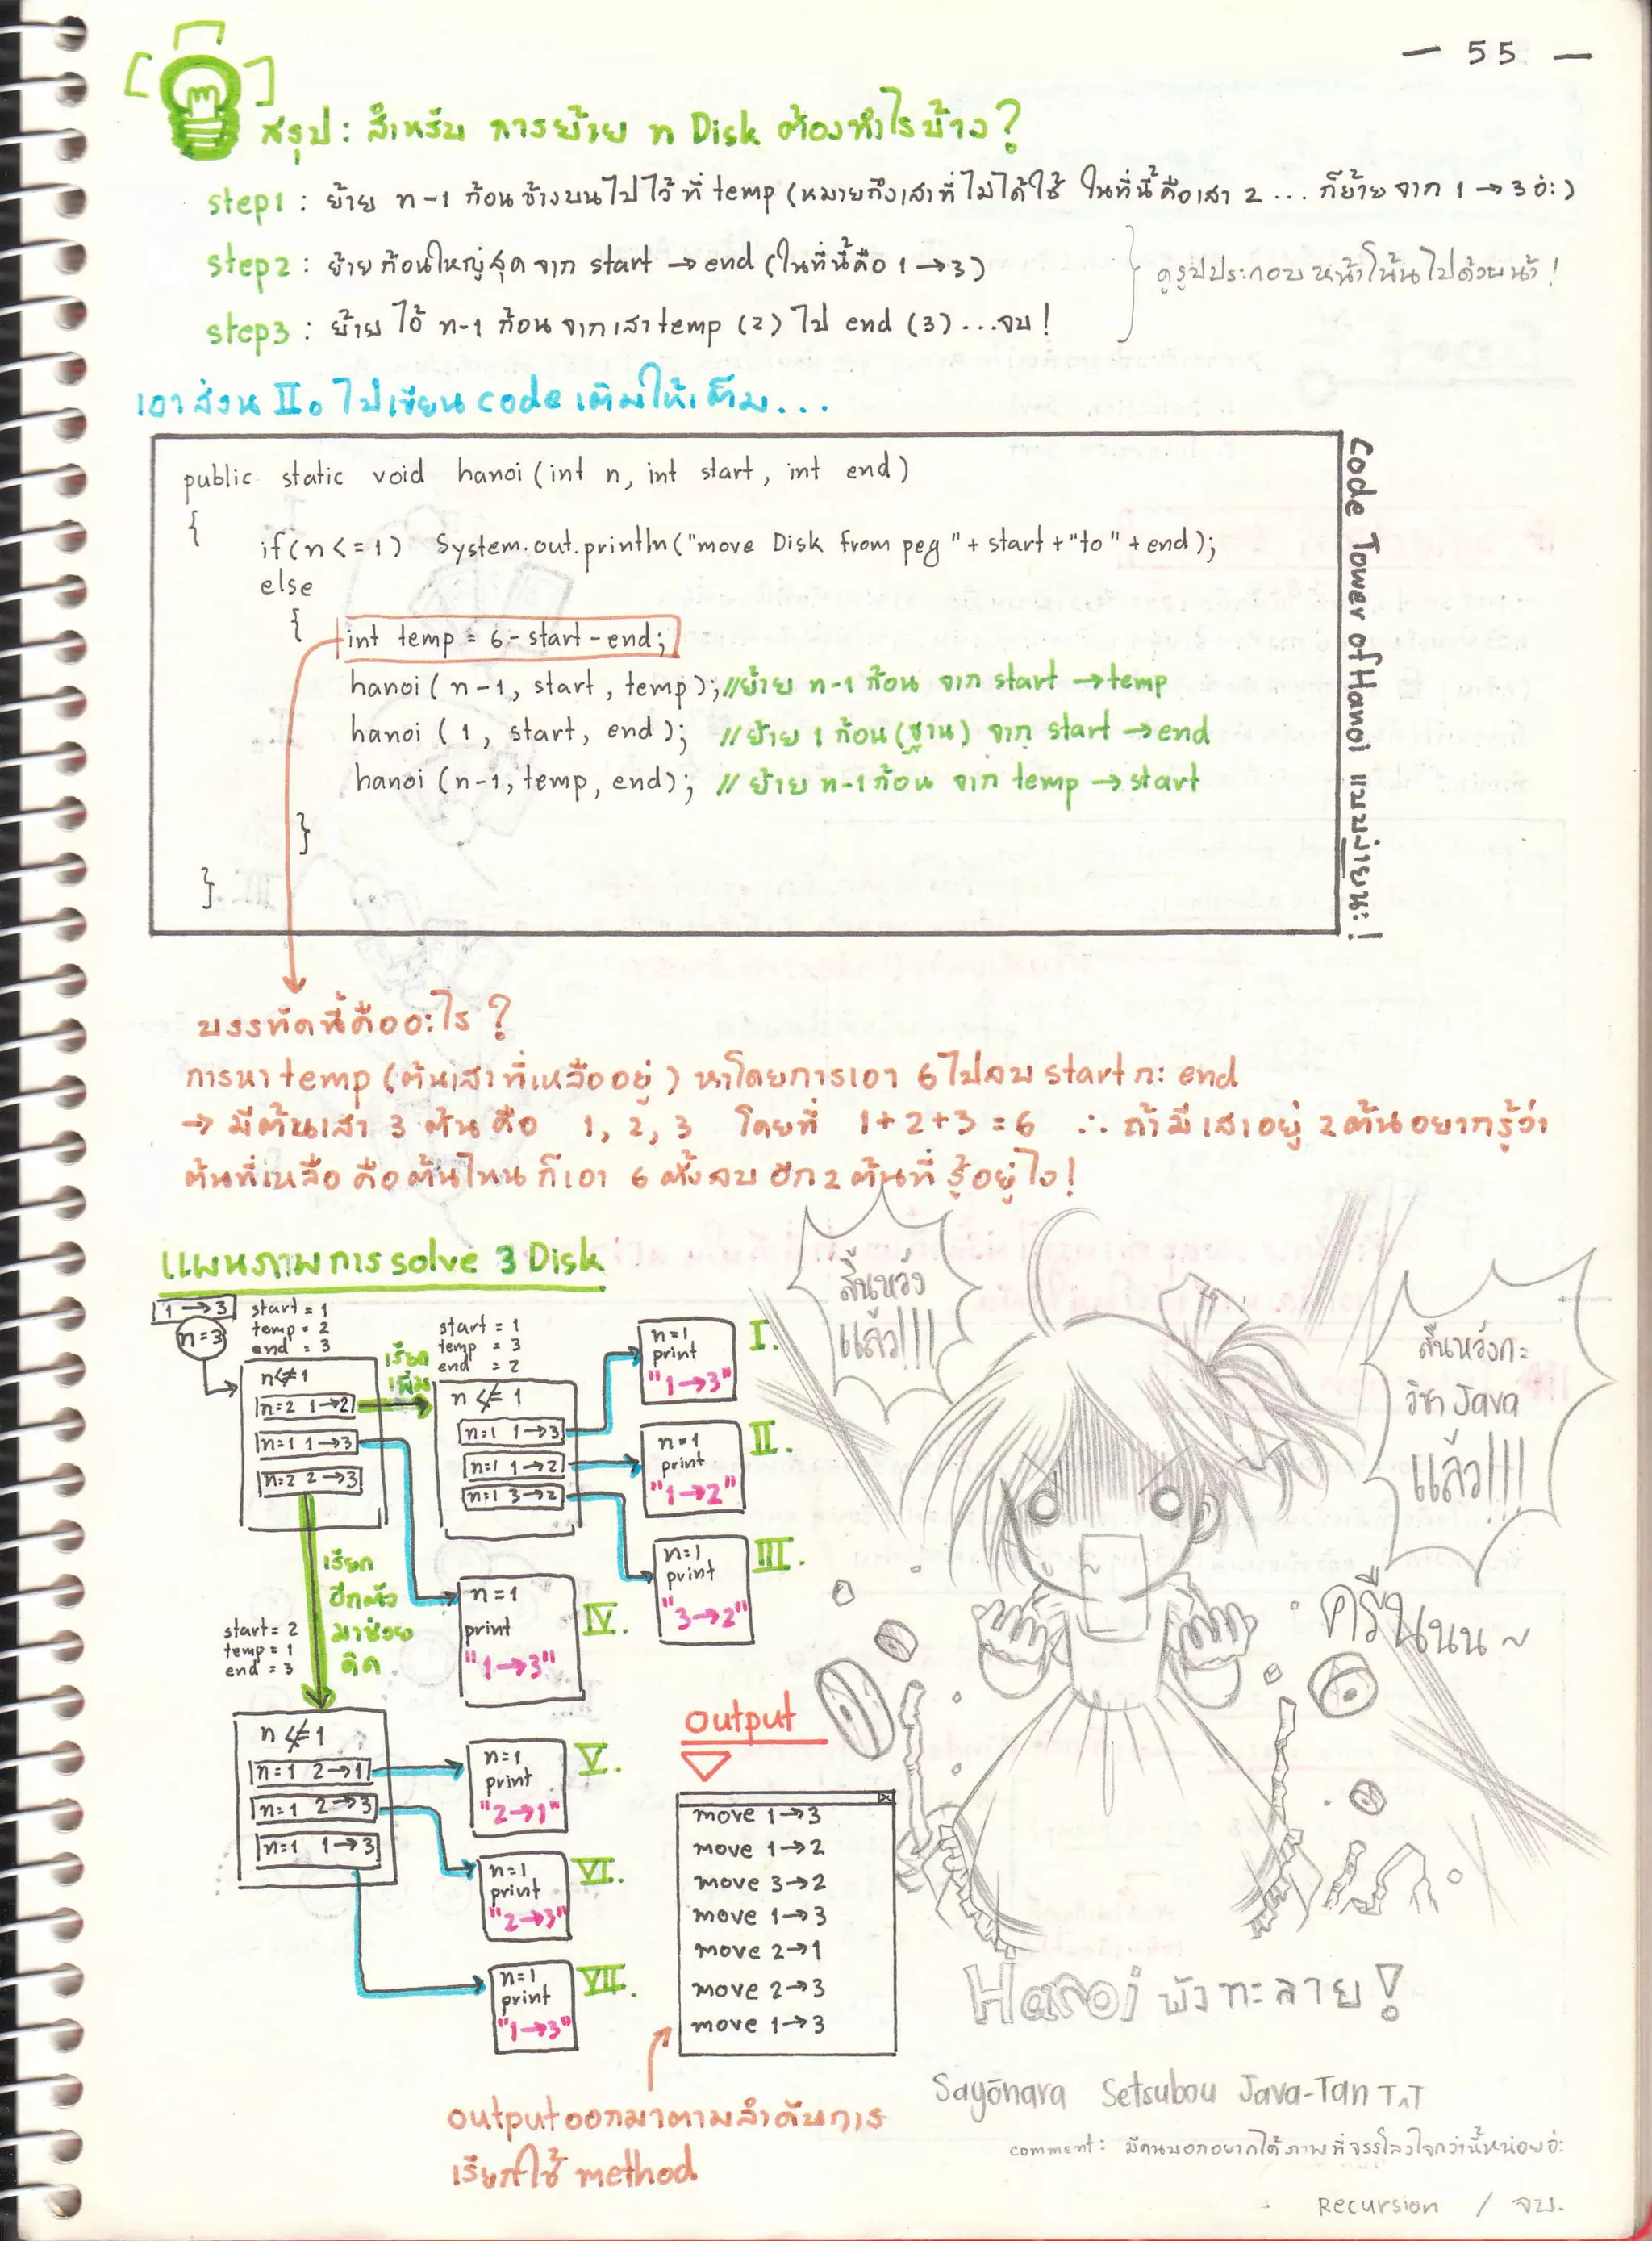 — 55 —
สรุป : สำหรับ การย้าย n Disk ต้องทำไรบ้าง?
step1 : ย้าย n-1 ก้อนข้างบนไปไว้ที่ temp (หมายถึงเสาที่ไม่ได้ใช้ ในที่นี้คือเสา 2 ... ก็ย้ายจาก 1→3 อ่ะ)
step2 : ย้ายก้อนใหญ่สุดจาก start → end (ในที่นี้คือ 1→3)
step3 : ย้าย ไอ้ n-1 ก้อน จากเสา temp (2) ไป end (3) ...จบ!
ดูรูปประกอบหน้าโน้นไปด้วยน้า!
เอาส่วน II. ไปเขียน code เติมให้เต็ม...
public static void hanoi (int n, int start, int end)
{
if(n<=1) System.out.println("move Disk from peg "+ start +"to" + end);
else
{
int temp = 6 - start - end;
hanoi ( n-1, start, temp); //ย้าย n-1 ก้อน จาก start → temp
hanoi ( 1, start, end ); //ย้าย 1 ก้อน (ฐาน) จาก start → end
hanoi (n-1, temp, end); // ย้าย n-1 ก้อน จาก temp → start
}
}
Code Tower of Hanoi แบบง่ายนะ!
บรรทัดนี้คืออะไร ?
การหา temp (ต้นเสาที่เหลืออยู่) หาโดยการเอา 6 ไปลบ start กะ end
→ มีต้นเสา 3 ต้น คือ 1, 2, 3 โดยที่ 1+2+3 = 6 ∴ ถ้ามีเสาอยู่ 2 ต้นอยากรู้ว่า
ต้นที่เหลือ คือต้นไหน ก็เอา 6 ตั้งลบ อีก 2 ต้นที่ รู้อยู่ไง!
แผนภาพการ solve 3 Disk
1→3
n=3
start = 1
temp = 2
end = 3
n≰1
n=2 1→2
n=1 1→3
n=2 2→3
เรียก
เพิ่ม
start = 1
temp = 3
end = 2
n ≰ 1
n=1 1→3
n=1 1→2
n=1 3→2
n=1
print
"1→3"
I.
n=1
print
"1→2"
II.
n=1
print
"3→2"
III.
n=1
print
"1→3"
IV.
เรียก
อีกตัว
มาช่วย
คิด
start = 2
temp = 1
end = 3
n ≰ 1
n=1 2→1
n=1 2→3
n=1 1→3
n=1
print
"2→1"
V.
n=1
print
"2→3"
VI.
n=1
print
"1→3"
VII.
output
move 1→3
move 1→2
move 3→2
move 1→3
move 2→1
move 2→3
move 1→3
output ออกมาตามลำดับการ
เรียกใช้ method
สิ้นหวัง
แล้ว!!!
สิ้นหวังกะ
วิชา Java
แล้ว!!!
ครืนนน ~
Hanoi พังทะลาย!
Sayōnara Setsubou Java-Tan T^T
comment: มีคนบอกอยากได้ภาพที่จรรโลงใจกว่านี้หน่อยอ่ะ
Recursion / จบ.